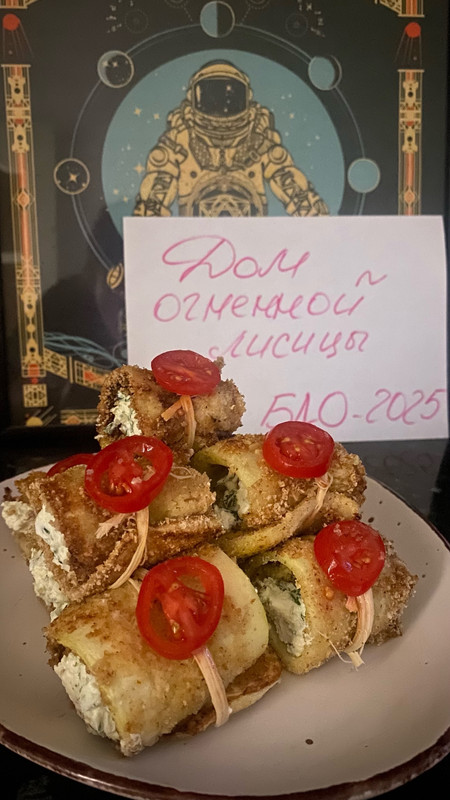 Дом
огненной
лисицы
БЛО-2025